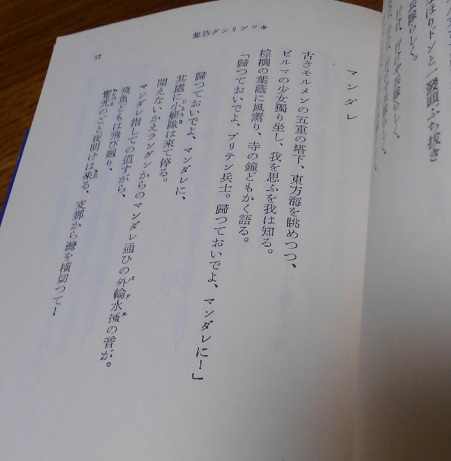 ほりトンと一發頭ふち抜き
キツプリング詩集
57
マンダレ
古きモルメンの五重の塔下、東方海を眺めつつ、
ビルマの少女獨り坐し、我を思ふを我は知る。
棕櫚の葉蔭に風薫り、寺の鐘ともかく語る。
「歸つておいでよ、ブリテン兵士。歸つておいでよ、マンダレに！」
歸つておいでよ、マンダレに、
其處に小艦隊は來て停る。
聞えないかえラングンからのマンダレ通ひの外輪水掻の音が。
マンダレ指しての道すがら、
飛魚どもは飛び躍り、
電光のごと夜明けは來る、支那から灣を横切つてー